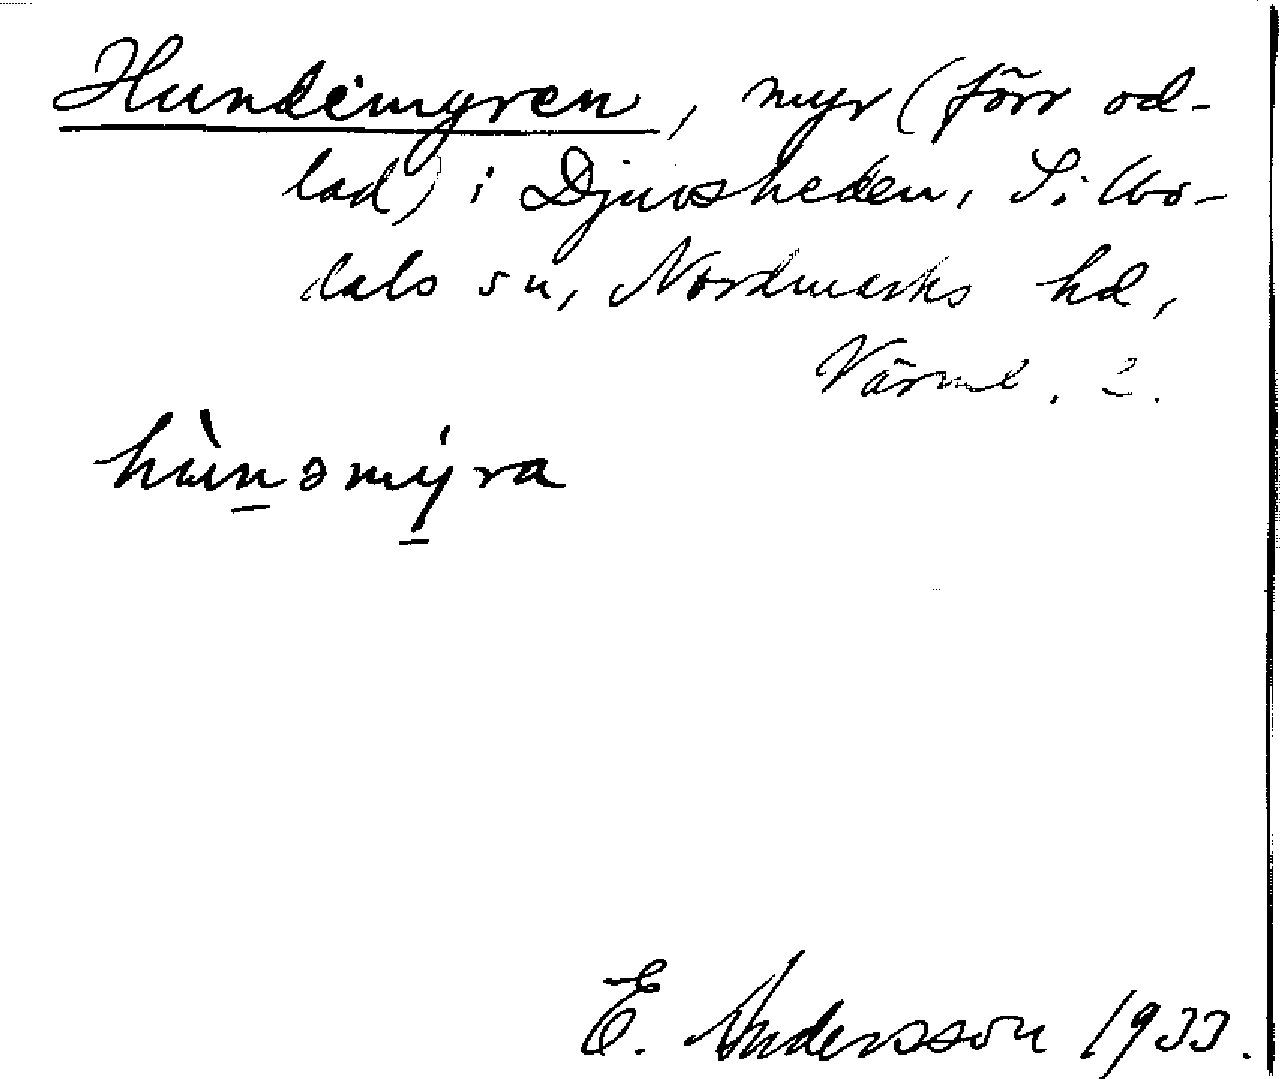 Hundemyren, myr (förr od-
lad) i Djuvsheden, Silbo-
dals sn, Nordmarks hd,
Värml. l.
hùnəmýra
E. Andersson 1933.